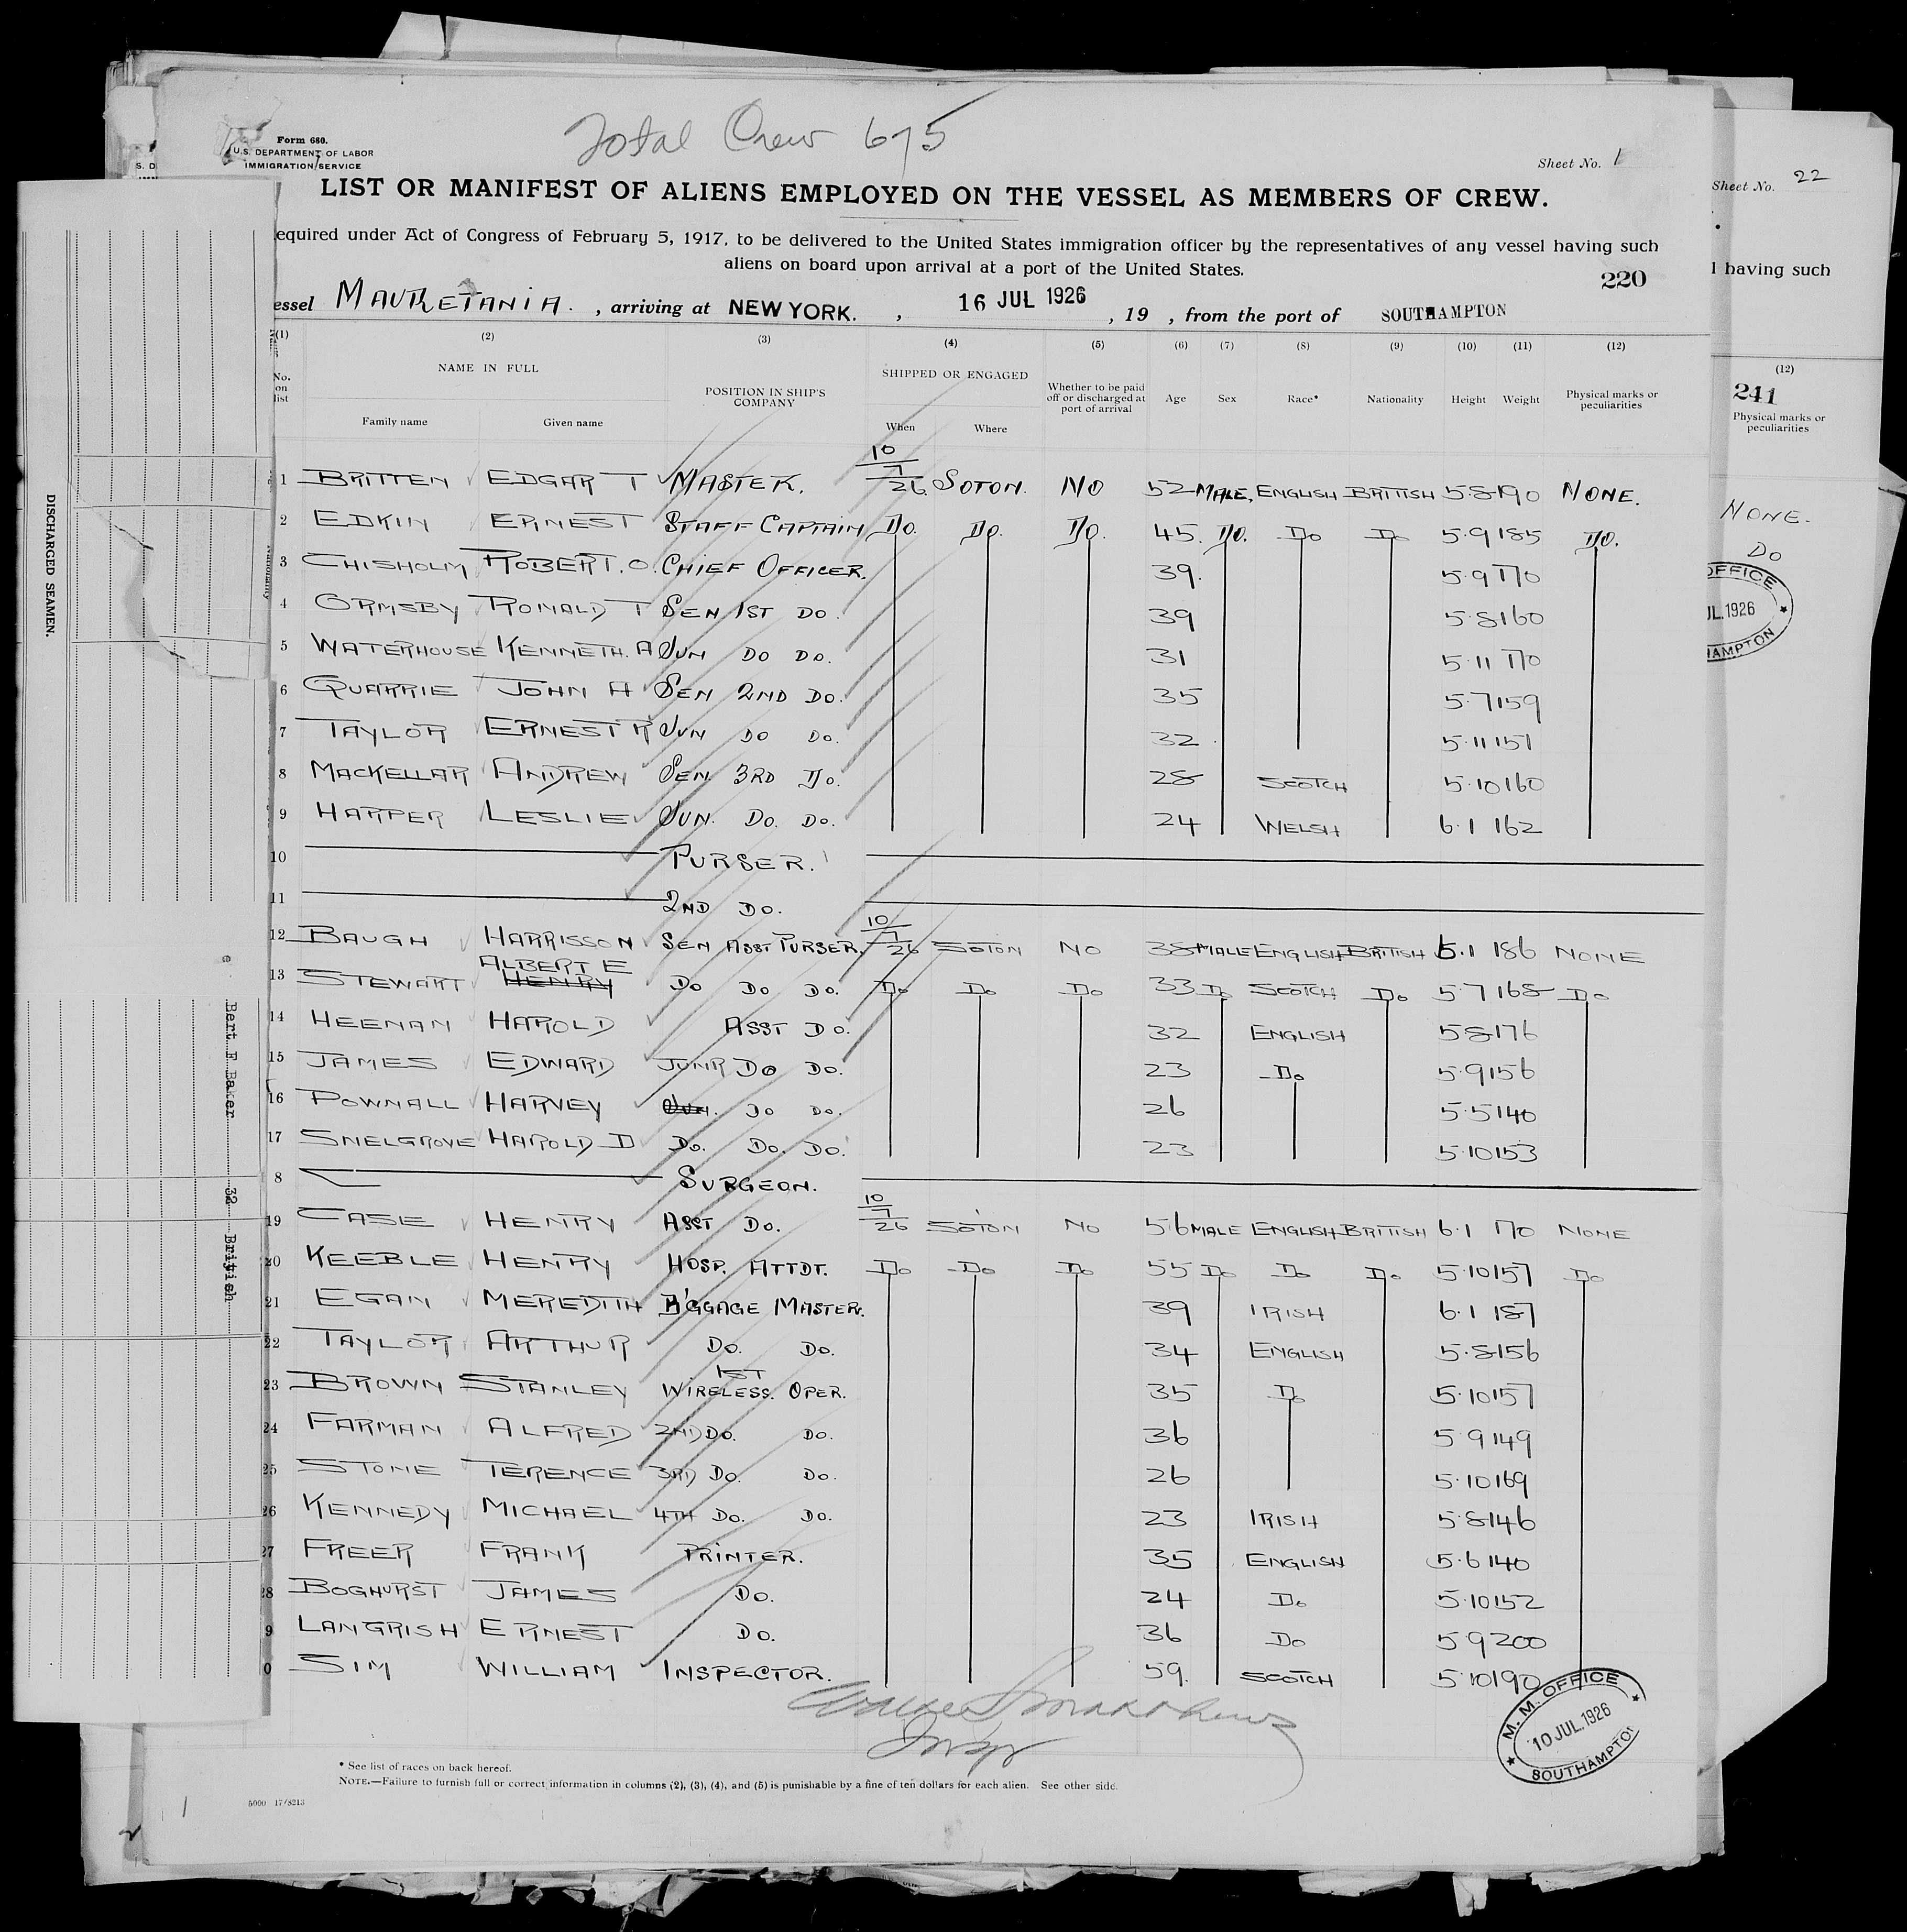 Total Crew 675
Form 680.
U.S. DEPARTMENT OF LABOR
IMMIGRATION SERVICE
Sheet No. 1
LIST OR MANIFEST OF ALIENS EMPLOYED ON THE VESSEL AS MEMBERS OF CREW.
equired under Act of Congress of February 5, 1917, to be delivered to the United States immigration officer by the representatives of any vessel having such
aliens on board upon arrival at a port of the United States.
220
essel MAURETANIA. , arriving at NEW YORK. , 16 JUL 1926 , 19 , from the port of SOUTHAMPTON
(1) (2) (3) (4) (5) (6) (7) (8) (9) (10) (11) (12)
No. on list NAME IN FULL Family name Given name POSITION IN SHIP'S COMPANY SHIPPED OR ENGAGED When Where Whether to be paid off or discharged at port of arrival Age Sex Race* Nationality Height Weight Physical marks or peculiarities
1 BRITTEN EDGAR T MASTER. 10/7/26 SOTON. NO 52 MALE. ENGLISH BRITISH 5.8 190 NONE.
2 EDKIN ERNEST STAFF CAPTAIN DO. DO. DO. 45. DO. DO DO 5.9 185 DO.
3 CHISHOLM ROBERT. O. CHIEF OFFICER. 39. 5.9 170
4 ORMSBY RONALD T SEN 1ST DO. 39 5.8 160
5 WATERHOUSE KENNETH. A JUN DO DO. 31 5.11 170
6 QUARRIE JOHN A SEN 2ND DO. 35 5.7 159
7 TAYLOR ERNEST R JUN DO DO. 32 5.11 151
8 MACKELLAR ANDREW SEN 3RD DO. 28 SCOTCH 5.10 160
9 HARPER LESLIE JUN. DO. DO. 24 WELSH 6.1 162
10 PURSER.
11 2ND DO.
12 BAUGH HARRISSON SEN ASST PURSER. 10/7/26 SOTON NO 38 MALE ENGLISH BRITISH 6.1 186 NONE
ALBERT E
13 STEWART HENRY DO DO DO. DO DO DO 33 DO SCOTCH DO 5.7 168 DO
14 HEENAN HAROLD ASST DO. 32 ENGLISH 5.8 176
15 JAMES EDWARD JUNR DO DO. 23 DO 5.9 156
16 POWNALL HARVEY JUN. DO DO. 26 5.5 140
17 SNELGROVE HAROLD D DO. DO. DO. 23 5.10 153
8 SURGEON.
19 CASE HENRY ASST DO. 10/7/26 SOTON NO 56 MALE ENGLISH BRITISH 6.1 170 NONE
20 KEEBLE HENRY HOSP. ATTDT. DO DO DO 55 DO DO DO 5.10 157 DO
21 EGAN MEREDITH B'GGAGE MASTER. 39 IRISH 6.1 187
22 TAYLOR ARTHUR DO. DO. 34 ENGLISH 5.8 156
1ST
23 BROWN STANLEY WIRELESS. OPER. 35 DO 5.10 157
24 FARMAN ALFRED 2ND DO. DO. 36 5.9 149
25 STONE TERENCE 3RD DO. DO. 26 5.10 169
26 KENNEDY MICHAEL 4TH DO. DO. 23 IRISH 5.8 146
27 FREER FRANK PRINTER. 35 ENGLISH 5.6 140
28 BOGHURST JAMES DO. 24 DO 5.10 152
9 LANGRISH ERNEST DO. 36 DO 5.9 200
0 SIM WILLIAM INSPECTOR. 59. SCOTCH 5.10 190
Insp
M. M. OFFICE
10 JUL. 1926
SOUTHAMPTO
* See list of races on back hereof.
NOTE.—Failure to furnish full or correct information in columns (2), (3), (4), and (5) is punishable by a fine of ten dollars for each alien. See other side.
5000 17/8213
1
DISCHARGED SEAMEN.
Bert F Baker 32 British
S. D
Sheet No. 22
l having such
(12)
241
Physical marks or
peculiarities
NONE.
DO
OFFICE
JL. 1926
HAMPTON